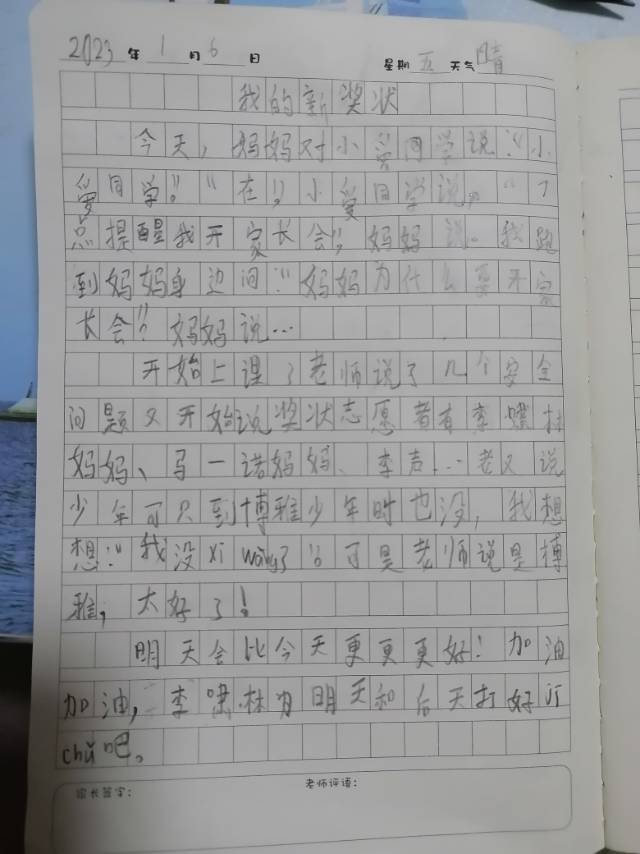 2023年1月6日 星期五天气晴
我的新奖状
今天，妈妈对小爱同学说：“小
爱同学”。“在”，小爱同学说。“7
点提醒我开家长会”，妈妈说。我跑
到妈妈身边问：“妈妈为什么要开家
长会”？妈妈说…
开始上课了老师说了几个安全
问题又开始说奖状志愿者有李林
妈妈、马一诺妈妈、李声…老又说
少年可只到博雅少年时也没，我想
想：“我没xi wàng了”。可是老师说是博
雅，太好了！
明天会比今天更更更好！加油
加油，李啸林为明天和后天打好ji
chǔ吧。
家长签字：
老师评语：